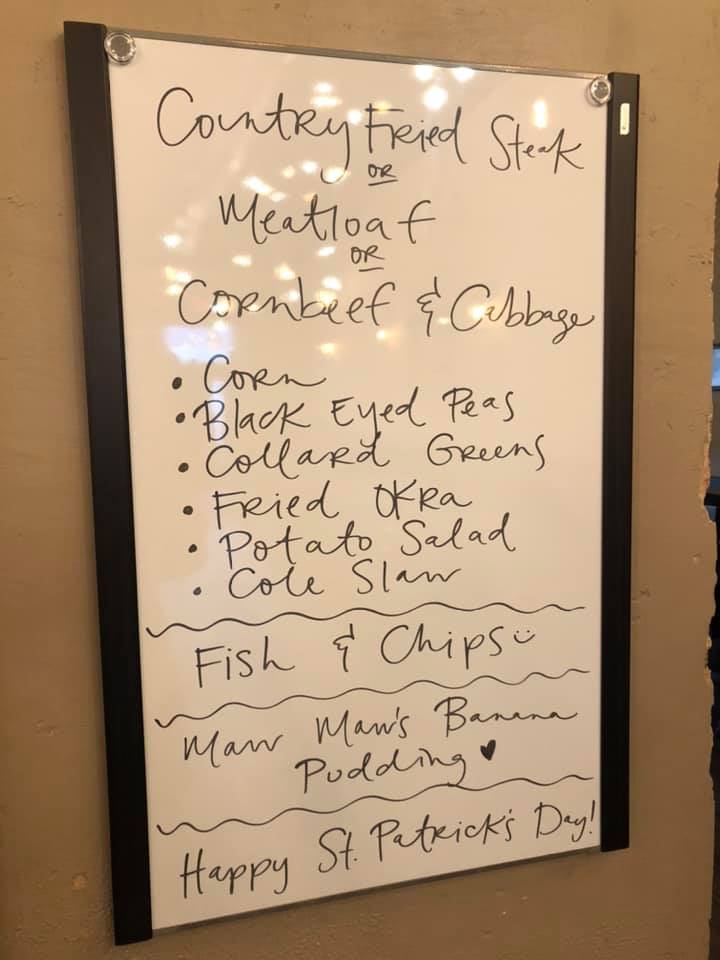 Country Fried Steak
OR
Meatloaf
OR
Cornbeef & Cabbage
• Corn
• Black Eyed Peas
• Collard Greens
• Fried OKRA
• Potato Salad
• Cole Slaw
Fish & Chips
Maw Maw's Banana
Pudding ♥
Happy St. Patrick's Day!